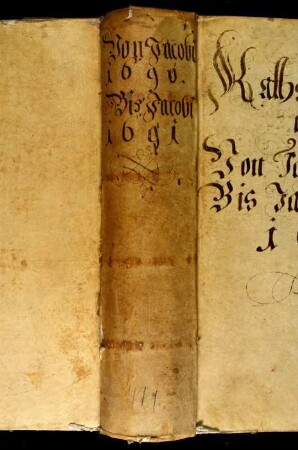 Von Jacobi
1690.
Bis Jacobi
1691
Raths
Von Ja
Bis Ja
1